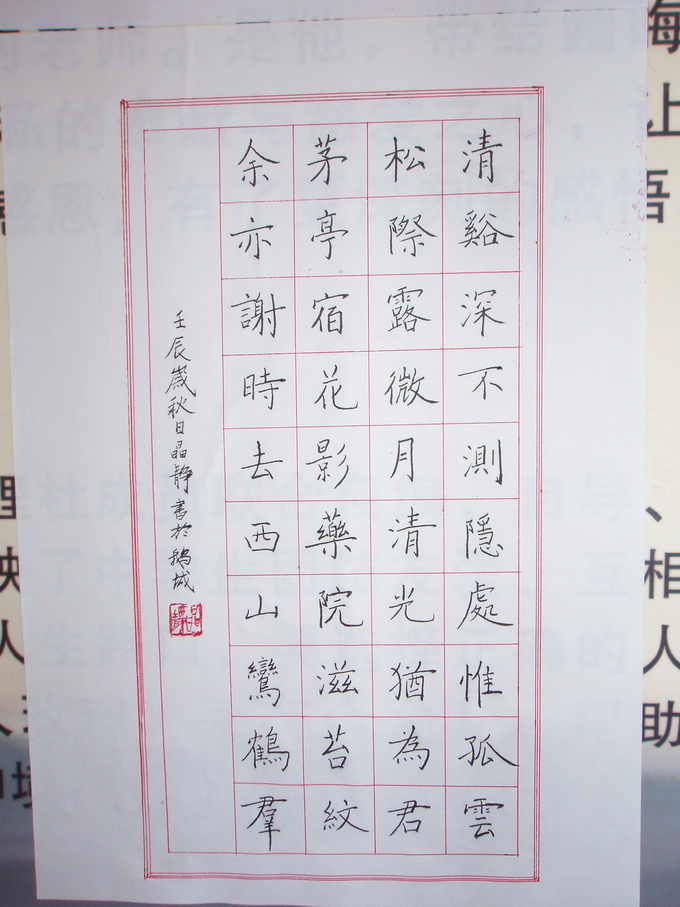 清谿深不測隱處惟孤雲
松際露微月清光猶為君
茅亭宿花影藥院滋苔紋
余亦謝時去西山鸞鶴羣
壬辰嵗秋日晶靜書於鵝城
让
相
人
助